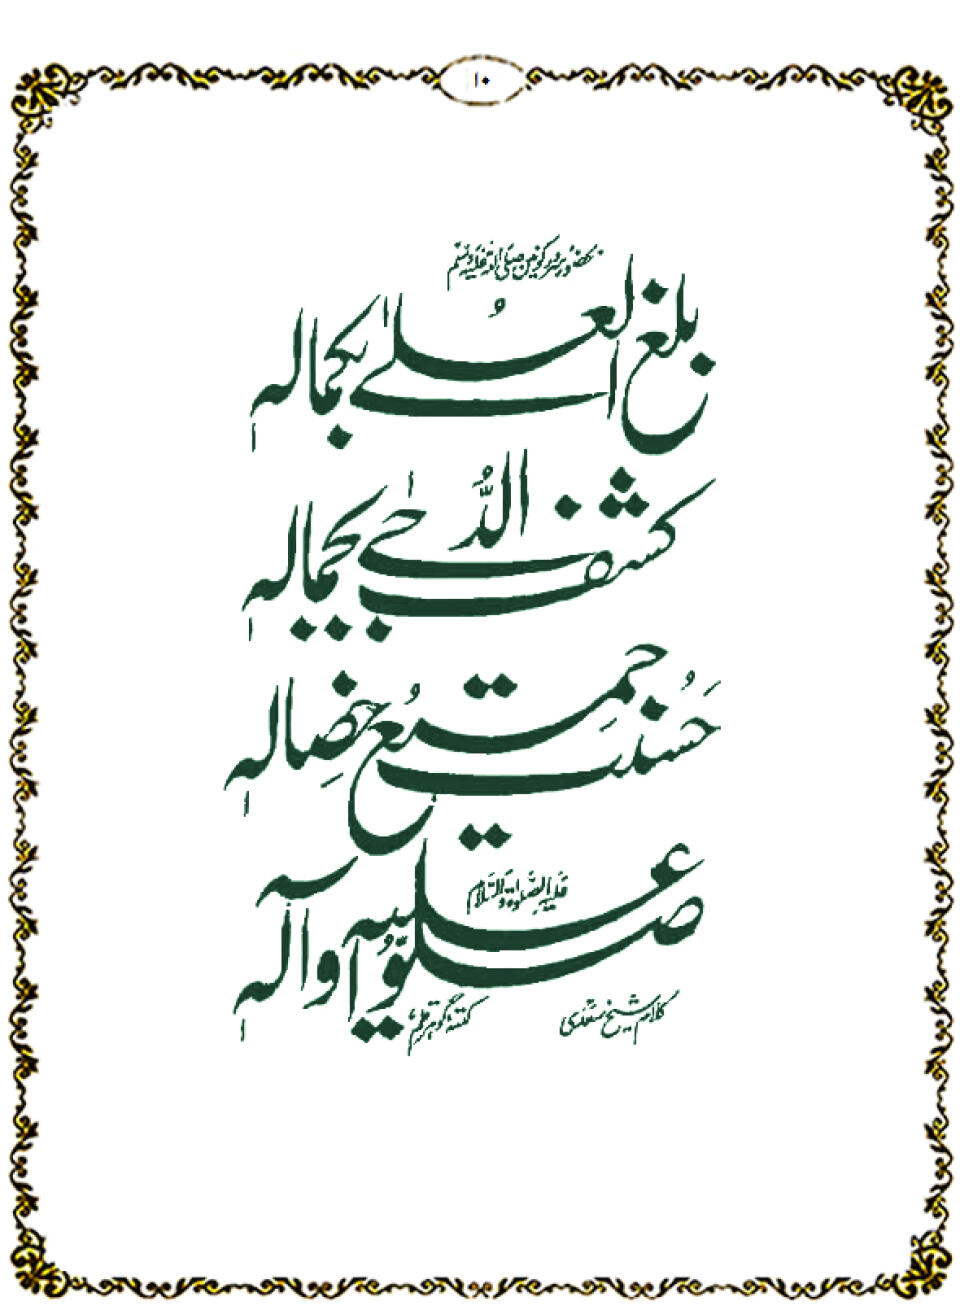 ۱۰
بحضور سرور کونین صلی اللہ علیہ وسلم
بلغ العُلےٰ بکمالہ
کشف الدُّجےٰ بجمالہ
حَسُنَت جمیعُ خِصالہ
صلّوا علیہ وآلہ
علیہ الصلوٰۃ والسلام
کلام شیخ سعدی
کتبہٗ گوہر قلم